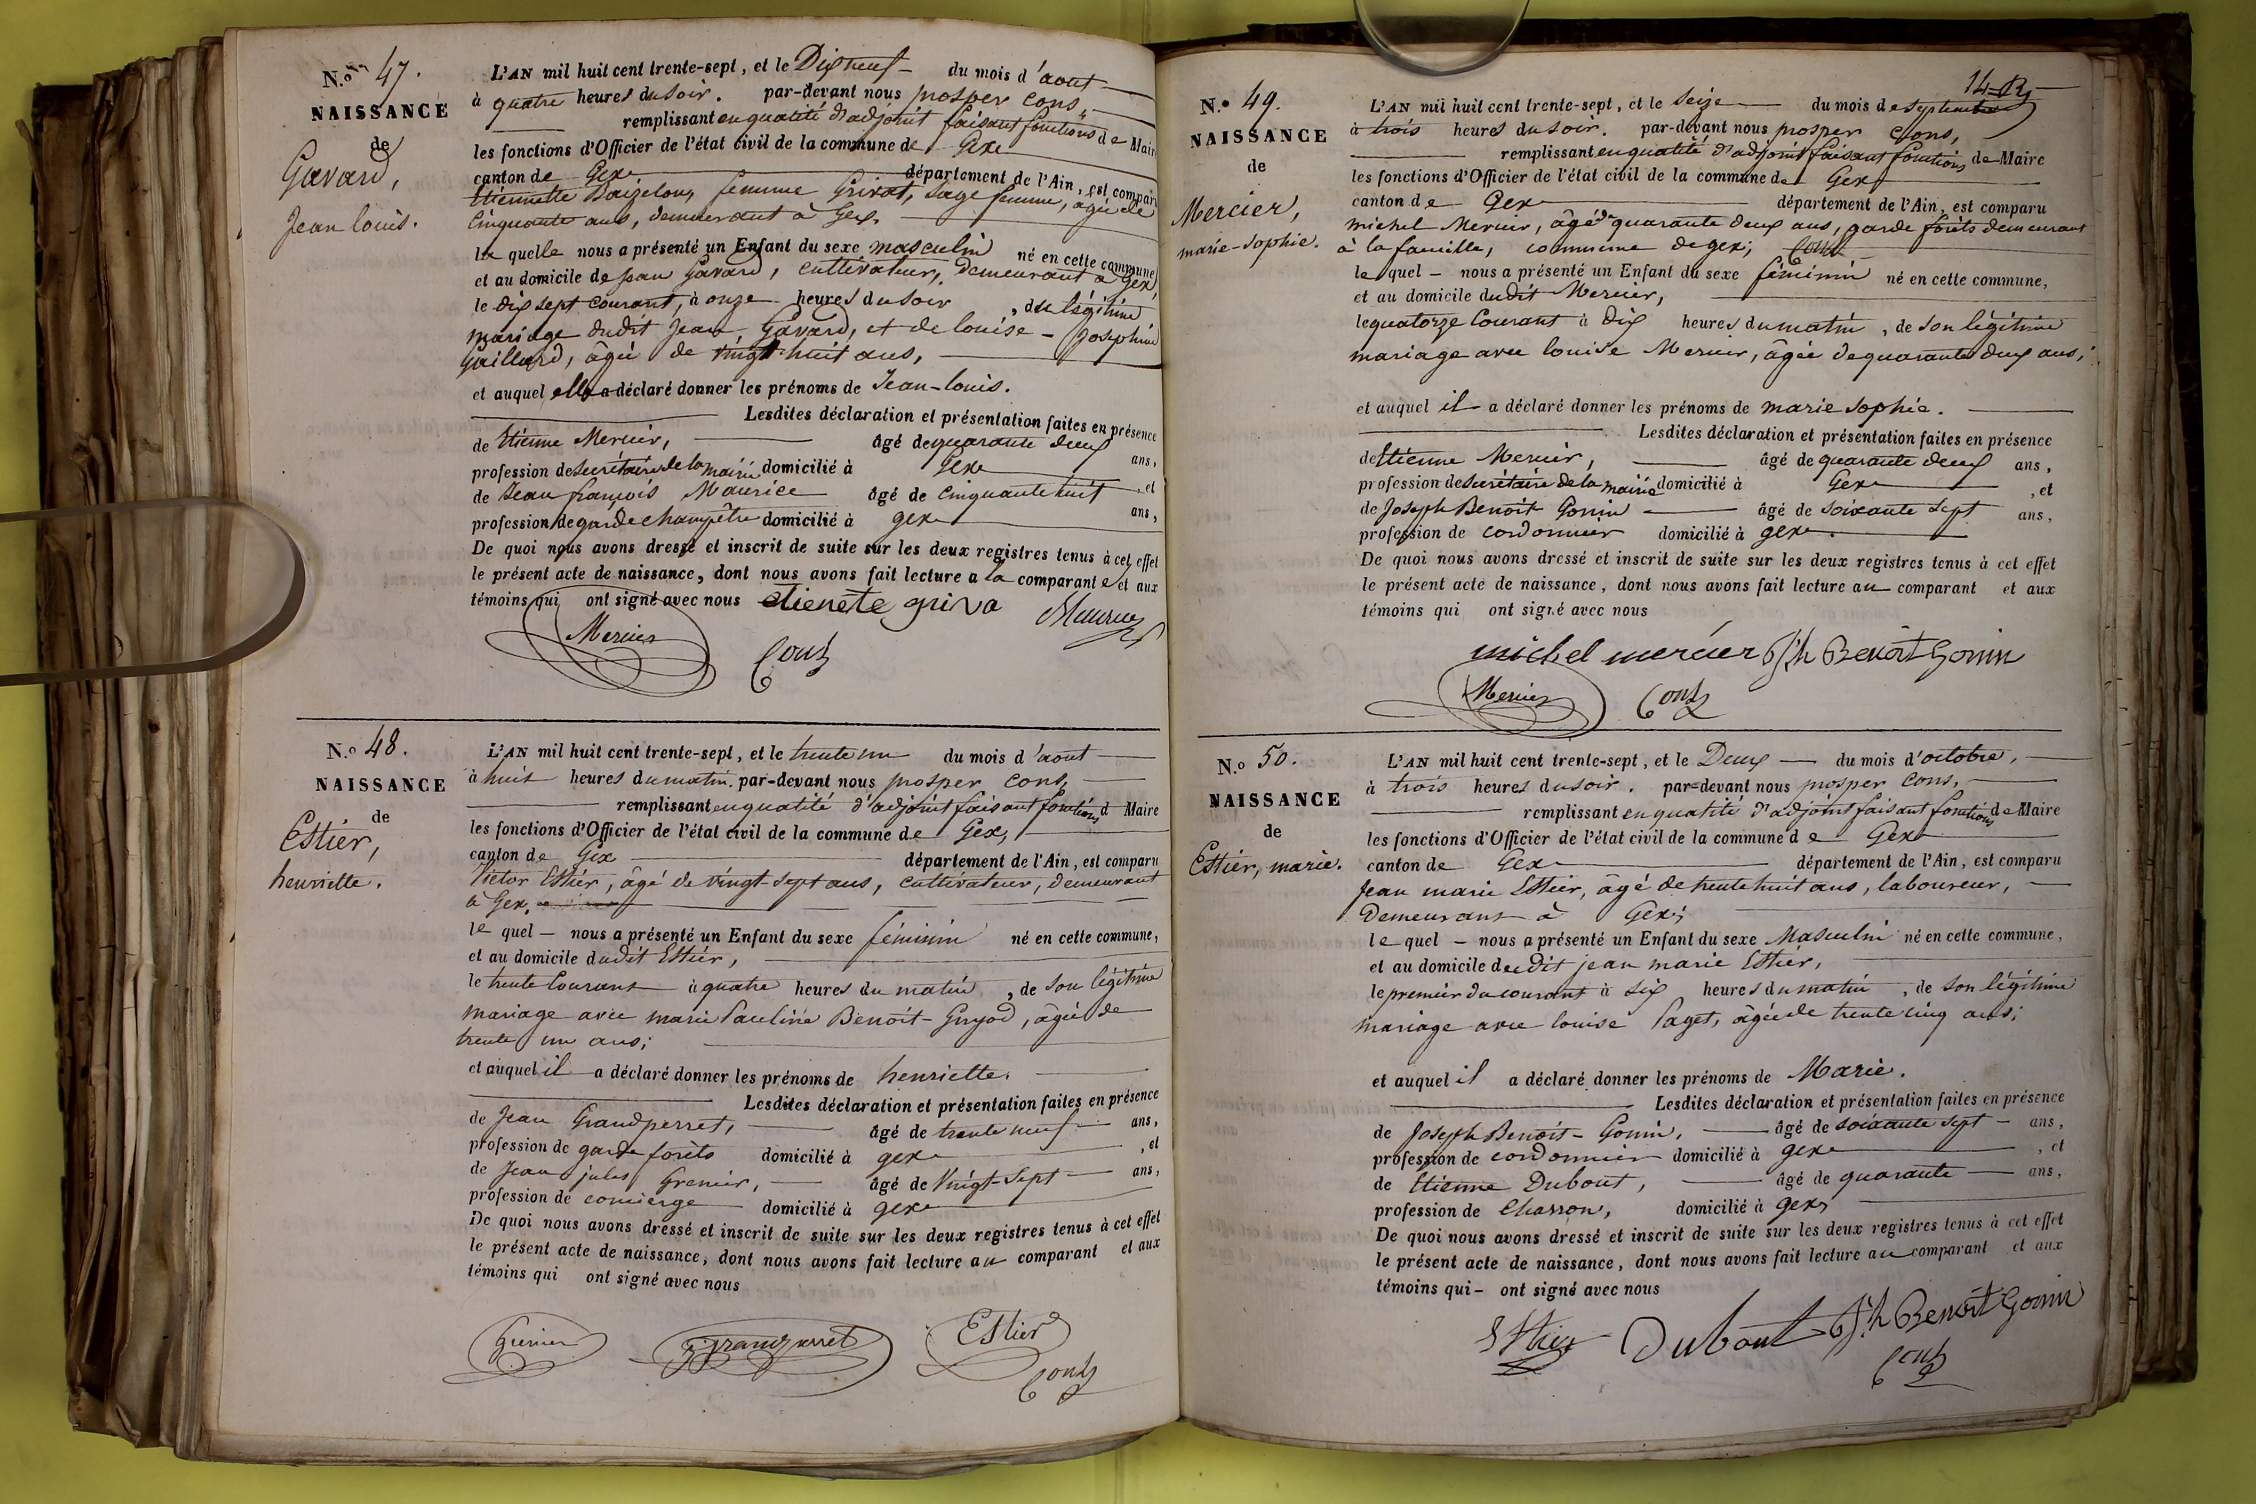 N.o 47.
NAISSANCE
de
Gavard,
Jean louis.
L'AN mil huit cent trente-sept, et le Dix neuf du mois d'aout
à quatre heures du soir. par-devant nous prosper Cons,
remplissant en qualité d'adjoint faisant fonctions de Maire
les fonctions d'Officier de l'état civil de la commune de Gex
canton de Gex département de l'Ain, est comparu
Etiennette Baizelon, femme Grivat, Sage femme, âgée de
Cinquante ans, demeurant à Gex,
la quelle nous a présenté un Enfant du sexe masculin né en cette commune
et au domicile de Jean Gavard, cultivateur, demeurant à Gex,
le dix sept courant, à onze heures du soir, du légitime
mariage dudit Jean Gavard, et de louise - Josephine
Gaillard, âgée de vingt huit ans,
et auquel elle a déclaré donner les prénoms de Jean-louis.
Lesdites déclaration et présentation faites en présence
de Etienne Mercier, âgé de quarante deux ans,
profession de Secrétaire de la mairie domicilié à Gex, et
de Jean françois Maurice âgé de Cinquante huit ans,
profession de garde champêtre domicilié à gex
De quoi nous avons dressé et inscrit de suite sur les deux registres tenus à cet effet
le présent acte de naissance, dont nous avons fait lecture a la comparante et aux
témoins qui ont signé avec nous etienete griva Maurice
Mercier Cons
N.o 48.
NAISSANCE
de
Estier,
henriette.
L'AN mil huit cent trente-sept, et le trente un du mois d'aout
à huit heures du matin. par-devant nous prosper Cons,
remplissant en qualité d'adjoint faisant fonctions d Maire
les fonctions d'Officier de l'état civil de la commune de Gex,
canton de Gex département de l'Ain, est comparu
Victor Estier, âgé de vingt-sept ans, cultivateur, demeurant
à Gex,
le quel - nous a présenté un Enfant du sexe féminin né en cette commune,
et au domicile dudit Estier,
le trente Courant à quatre heures du matin, de son légitime
mariage avec marie Pauline Benoit-Guyod, âgée de
trente un ans;
et auquel il a déclaré donner les prénoms de henriette.
Lesdites déclaration et présentation faites en présence
de Jean Grandperret, âgé de trente neuf ans,
profession de garde forêts domicilié à gex, et
de Jean jules Grenier, âgé de Vingt-Sept ans,
profession de concierge domicilié à gex
De quoi nous avons dressé et inscrit de suite sur les deux registres tenus à cet effet
le présent acte de naissance, dont nous avons fait lecture au comparant et aux
témoins qui ont signé avec nous
Grenier Grandperret Estier
Cons
14
N.o 49.
NAISSANCE
de
Mercier,
marie-Sophie.
L'AN mil huit cent trente-sept, et le Seize du mois de Septembre
à trois heures du soir. par-devant nous prosper Cons,
remplissant en qualité d'adjoint faisant fonctions de Maire
les fonctions d'Officier de l'état civil de la commune de Gex
canton de Gex département de l'Ain, est comparu
michel Mercier, âgé de quarante deux ans, garde forêts demeurant
à la faucille, commune de gex; Cons
le quel - nous a présenté un Enfant du sexe féminin né en cette commune,
et au domicile dudit Mercier,
le quatorze Courant à Dix heures du matin, de son légitime
mariage avec louise Mercier, âgée de quarante deux ans;
et auquel il a déclaré donner les prénoms de marie Sophie.
Lesdites déclaration et présentation faites en présence
de Etienne Mercier, âgé de quarante deux ans,
profession de Secrétaire de la mairie domicilié à Gex, et
de Joseph Benoit Gonin âgé de soixante sept ans,
profession de cordonnier domicilié à gex.
De quoi nous avons dressé et inscrit de suite sur les deux registres tenus à cet effet
le présent acte de naissance, dont nous avons fait lecture au comparant et aux
témoins qui ont signé avec nous
michel mercier Jh Benoit Gonin
Mercier Cons
N.o 50.
NAISSANCE
de
Estier, marie.
L'AN mil huit cent trente-sept, et le Deux du mois d'octobre,
à trois heures du soir. par-devant nous prosper Cons,
remplissant en qualité d'adjoint faisant fonctions de Maire
les fonctions d'Officier de l'état civil de la commune de Gex
canton de Gex département de l'Ain, est comparu
Jean marie Estier, âgé de trente huit ans, laboureur,
Demeurant à Gex;
le quel - nous a présenté un Enfant du sexe Masculin né en cette commune,
et au domicile dudit jean marie Estier,
le premier du courant à Six heures du matin, de son légitime
mariage avec louise Paget, âgée de trente cinq ans;
et auquel il a déclaré donner les prénoms de Marie.
Lesdites déclaration et présentation faites en présence
de Joseph Benoit-Gonin, âgé de soixante sept - ans,
profession de cordonnier domicilié à gex, et
de Etienne Dubout, âgé de quarante ans,
profession de Charron, domicilié à gex
De quoi nous avons dressé et inscrit de suite sur les deux registres tenus à cet effet
le présent acte de naissance, dont nous avons fait lecture au comparant et aux
témoins qui - ont signé avec nous
Estier Dubout Jh Benoit Gonin
Cons